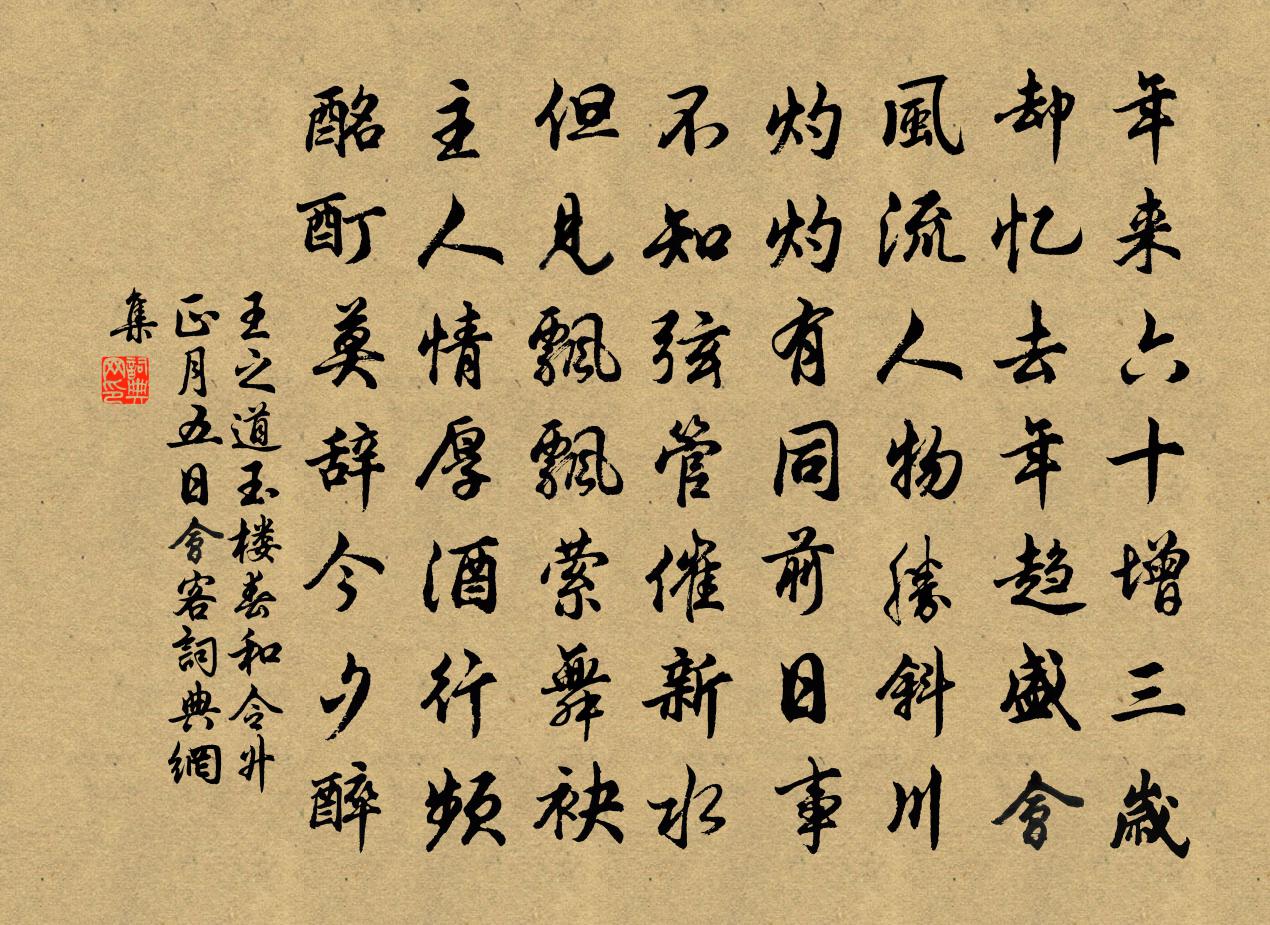 年来六十增三歲
却忆去年趋盛會
風流人物勝斜川
灼灼有同前日事
不知弦管催新水
但見飄飄萦舞袂
主人情厚酒行频
酩酊莫辞今夕醉
王之道玉楼春和令升
正月五日會客詞典網
集
詞典网印